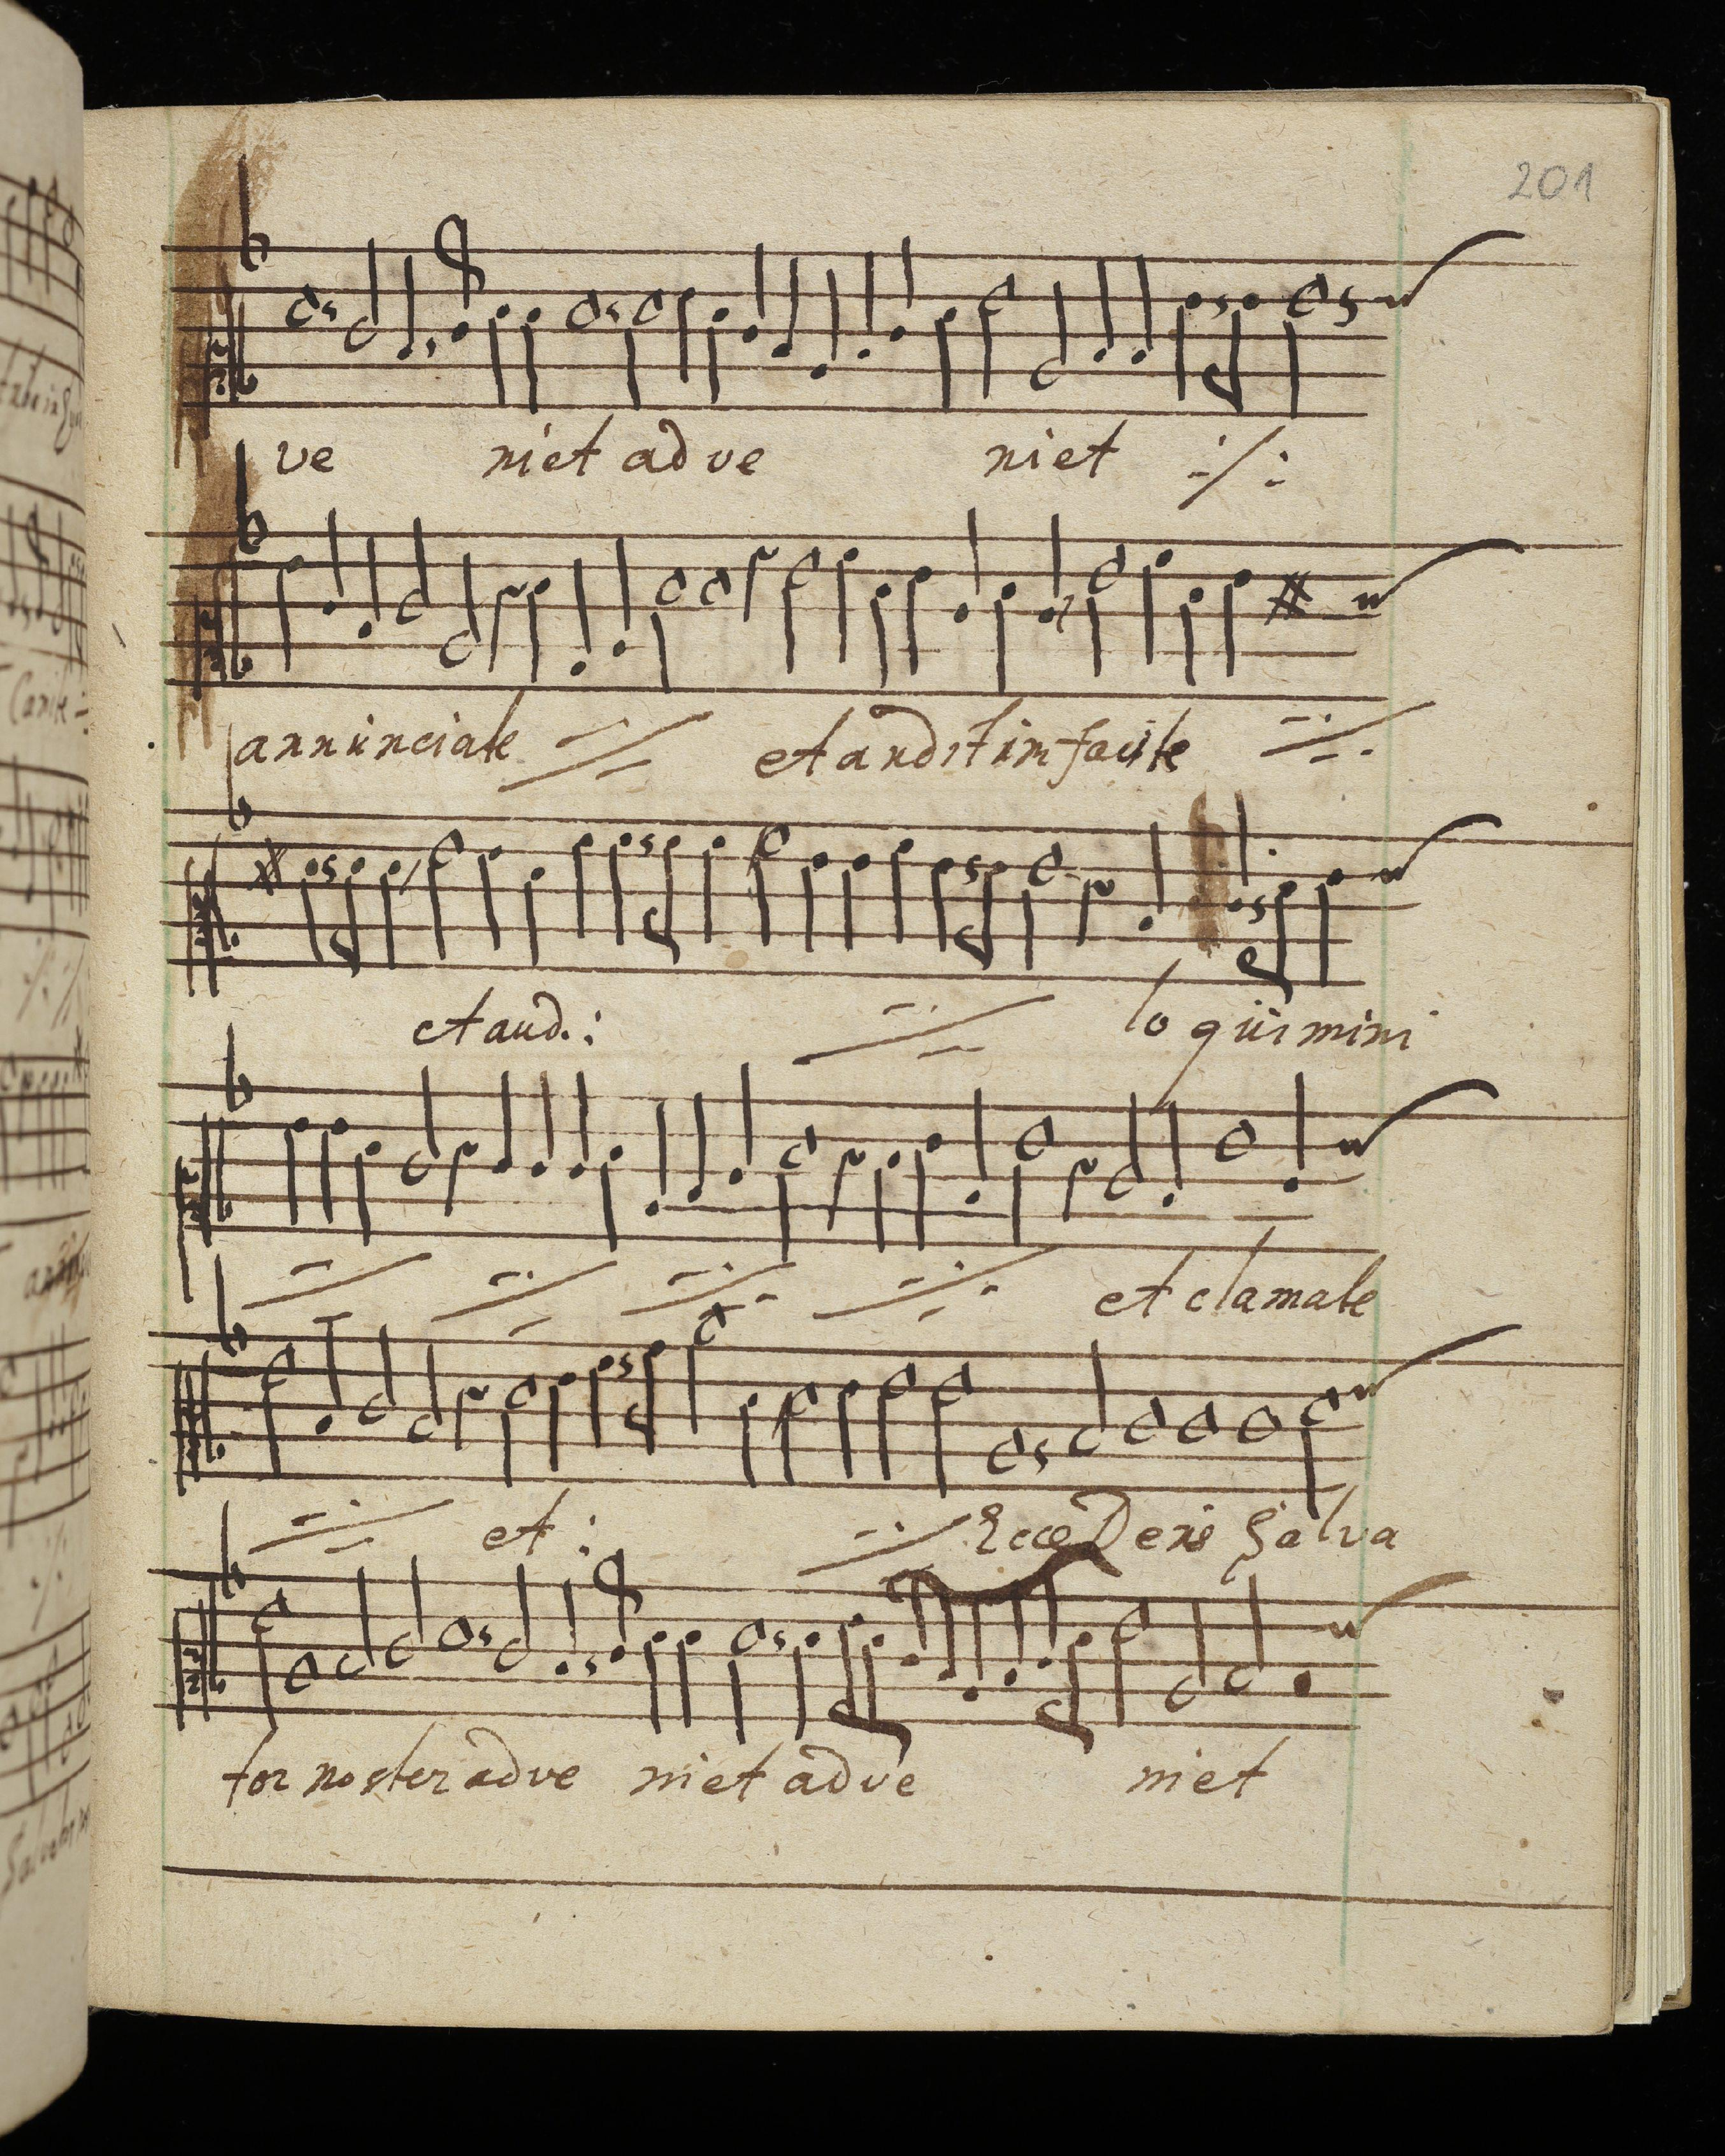 201
ve niet adve niet ·/:
annunciate et audit im facite
et aud.: loquimini
et clamate
et: Ecce Deus Salva
tor noster adve niet adve niet